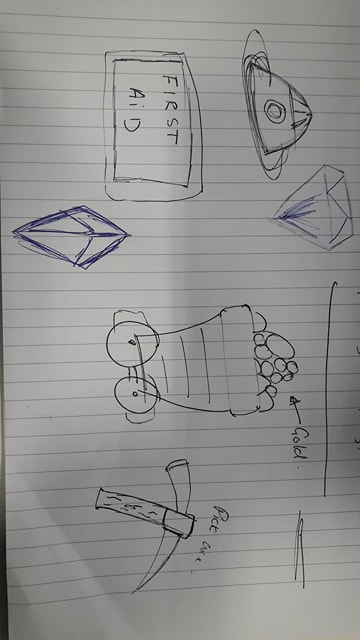 FIRST
AiD
Gold.
Pick axe.